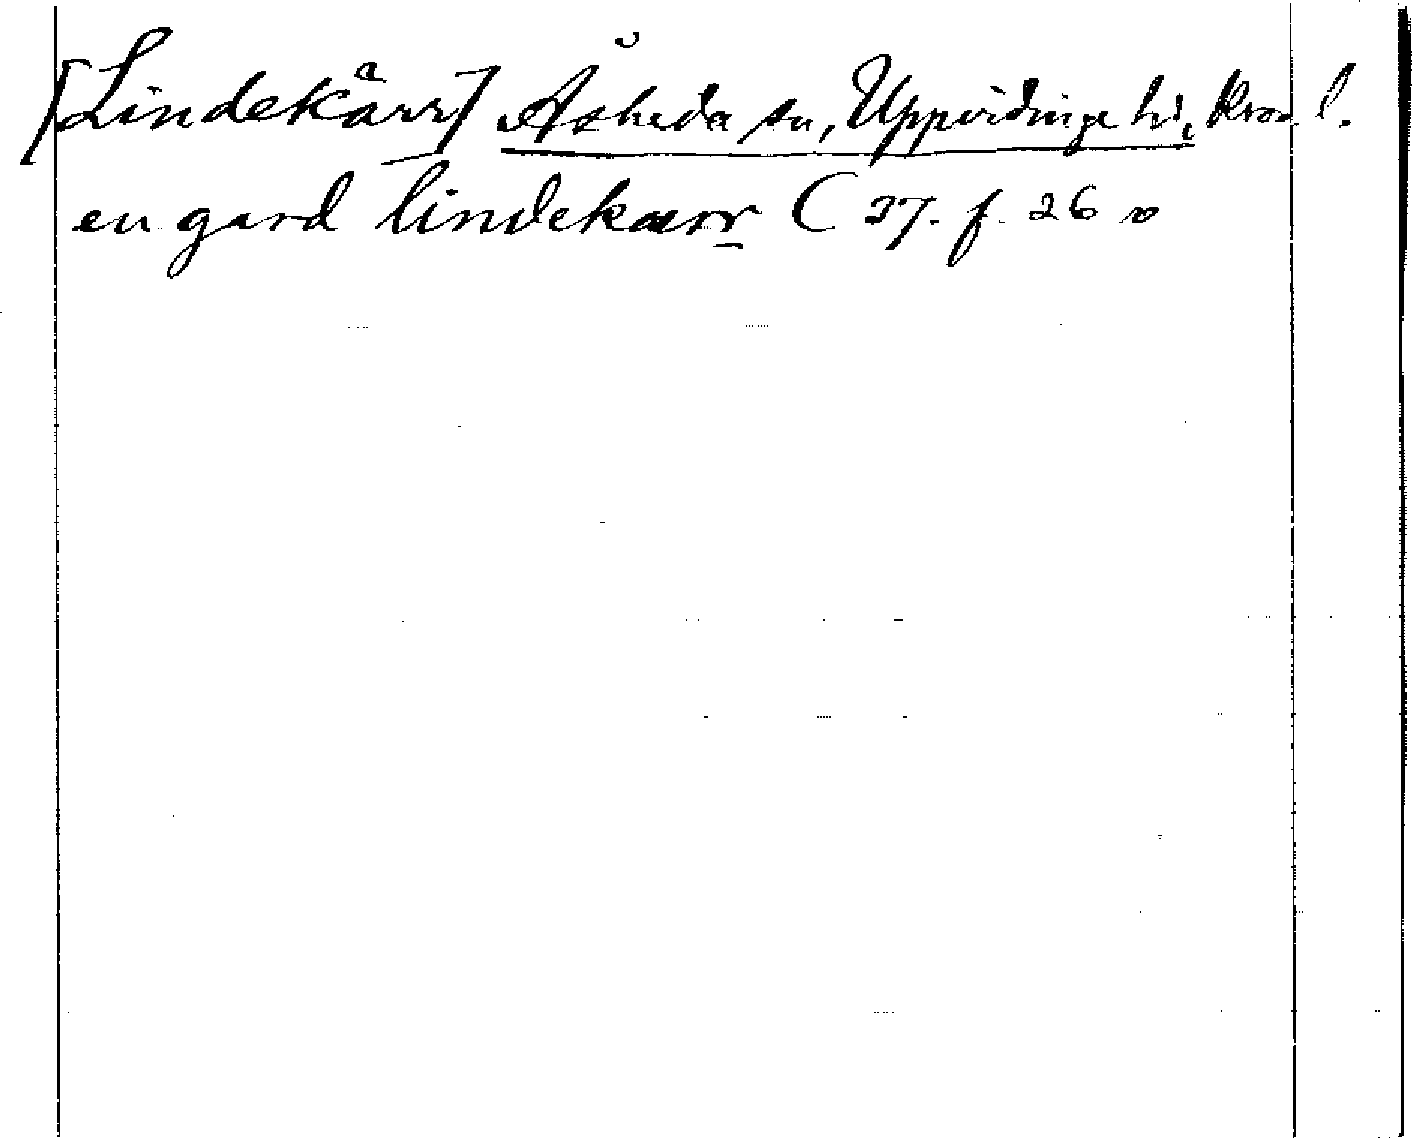 [Lindekärr] Åsheda sn, Uppvidinge hd, Kron. l.
en gard lindekærr C 37. f. 26 v